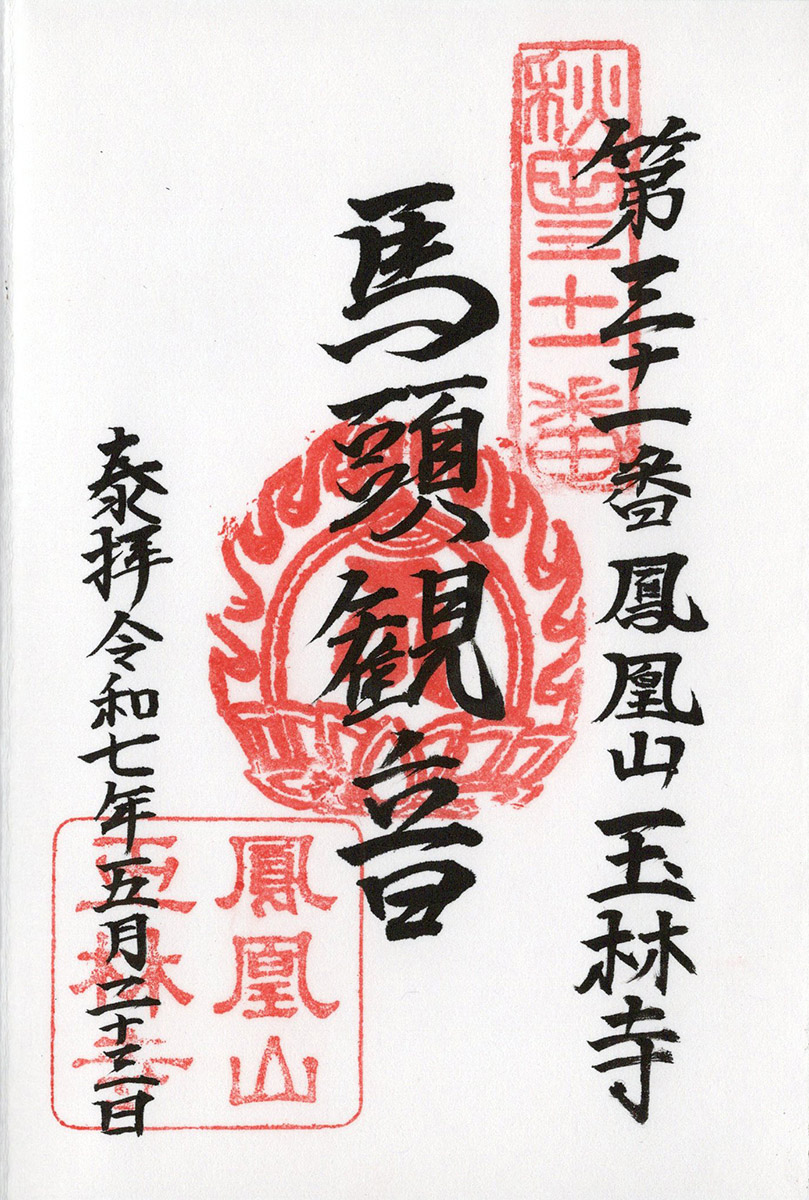 秋田三十一番
第三十一番鳳凰山玉林寺
馬頭観音
奉拝令和七年五月二十三日
鳳凰山
玉林寺